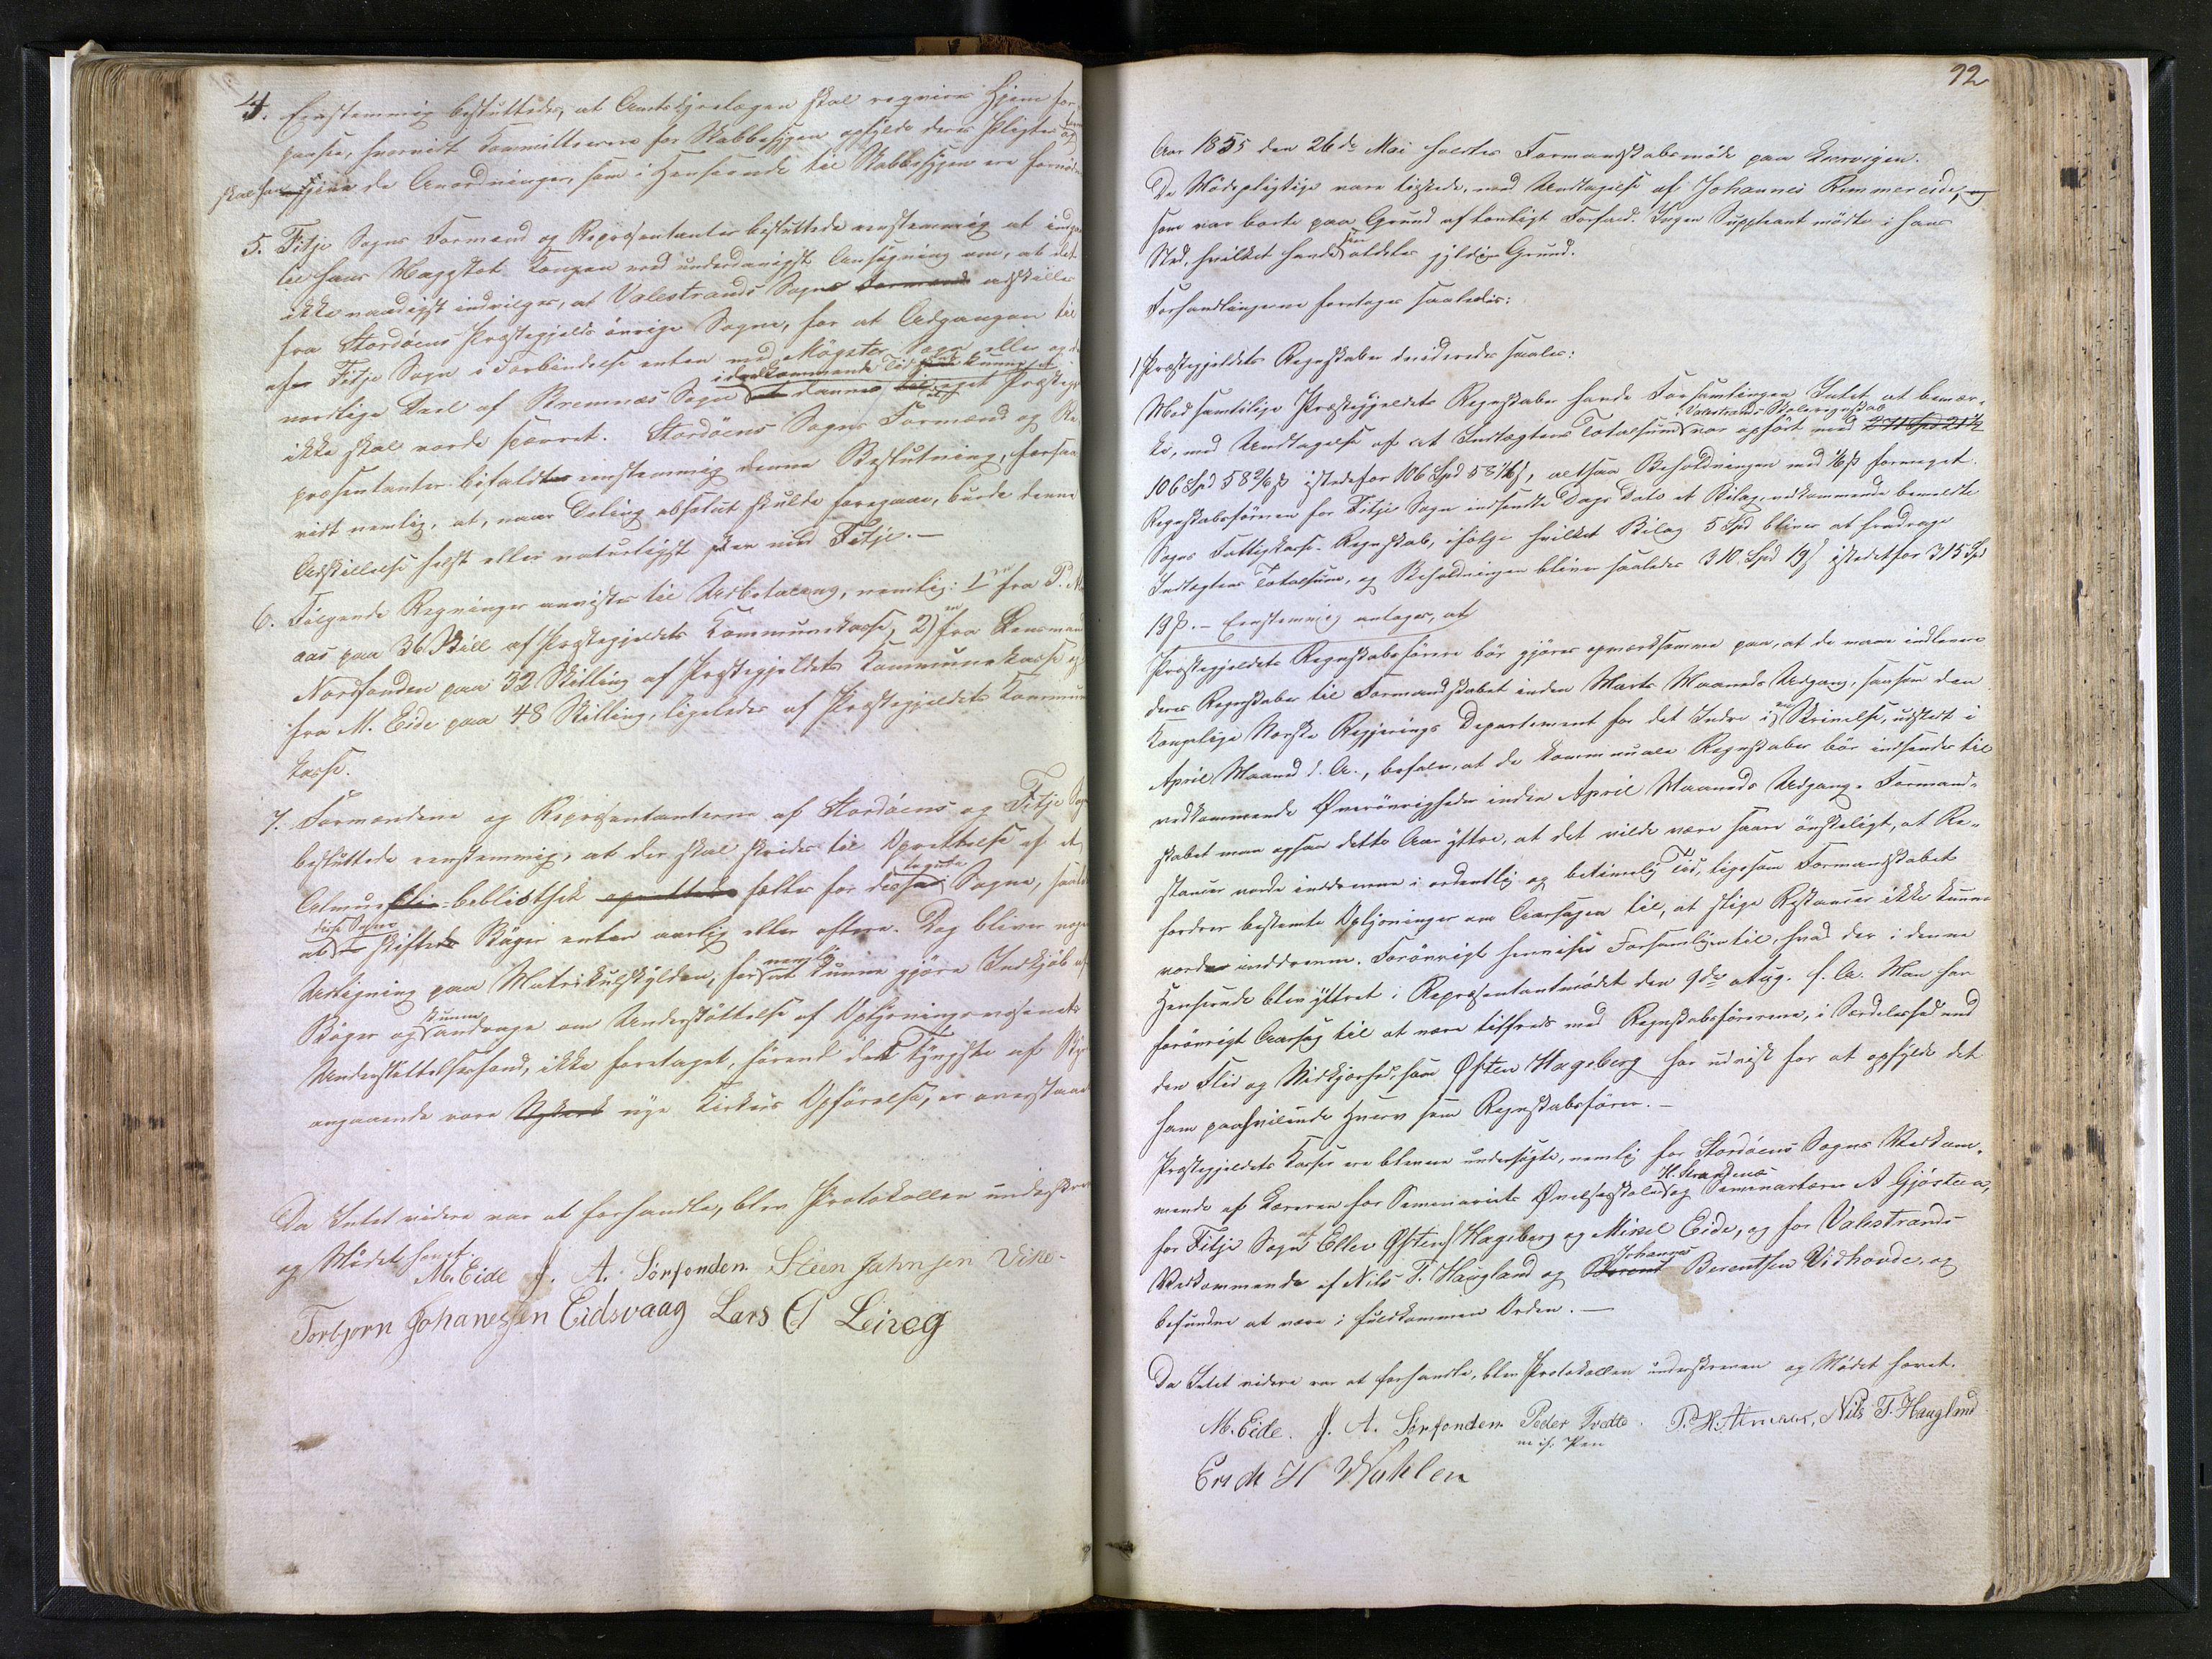 4. Eenstemmig besluttedes, at Amtsdyrelægen skal requirere Hjem for-
hvorvidt Kommitteerne for Skabbesygen opfylde deres Pligter og
skal han give de Anordninger, som i Henseende til Skabbesygen ere fornødne
5. Fitje Sogns Formænd og Repræsentanter besluttede eenstemmig at indgaae
til hans Majestæt Kongen med underdanigst Ansøgning om, at det
ikke naadigst indvilges, at Valestrands Sogn Formænd adskilles
fra Stordøens Præstegjelds øvrige Sogne, for at Adgangen til
af Fitje Sogn i Forbindelse enten med Møgster Sogn eller og den
i vedkommende Tid kunne et
nordlige Deel af Bremnæs Sogn at danne til eget Præstegj
ikke skal vorde spærret. Stordøens Sogns Formænd og Re-
præsentanter bifaldt eenstemmig denne Beslutning, forsaa-
vidt nemlig, at, naar Deling absolut skulde foregaae, burde denne
Adskillelse helst eller naturligst skee med Fitje. —
6. Følgende Regninger anvistes til Udbetaling, nemlig: 1 en fra P. A
aas paa 36 Skill af Præstegjeldets Kommunekasse, 2) en fra Lensmand
Nordfonden paa 32 Skilling af Præstegjeldets Kommunekasse og
fra M. Eide paa 48 Skilling, ligeledes af Præstegjeldets Kommune
kasse.
7. Formændene og Repræsentanterne af Stordøens og Fitje Sogn
besluttede eenstemmig, at der skal skrides til Oprettelse af et
Almue-bibliothek oprettet fælles for disse tvende Sogne, saaledes
disse Sogne
at skifte Bøger enten aarlig eller oftere. Dog bliver nogen
Udligning paa Matrikulskylden, for nemlig at kunne gjøre Indkjøb af
Bøger og kunne andrage om Understøttelse af Oplysningsvæsenets
Understøttelsesfond, ikke foretaget, førend det tyngste af Byr
angaaende vore nye Kirkers Opførelse, er overstaaet
Da Intet videre var at forhandle, blev Protokollen underskreven
og Mødet hævet.
M. Eide J. A. Sørfonden Steen Jahnsen Vike
Torbjørn Johanessen Eidsvaag Lars O Leirvg
92
Aar 1855 den 26de Mai holdtes Formandskabsmøde paa Lervigen.
De Mødepligtige vare tilstede, med Undtagelse af Johannes Rimmereide, og
som var borte paa Grund af lovligt Forfald. Ingen Suppleant mødte i hans
Sted, hvilket havde sin aldeles gyldige Grund.
Forhandlingerne foretoges saaledes:
1) Præstegjeldets Regnskaber decideredes saaledes:
Med samtlige Præstegjeldets Regnskaber havde Forsamlingen Intet at bemær-
Valestrands Skoleregnskab
ke, med Undtagelse af at Indtægtens Totalsum var opført med
106 Spd 58 2/6 ß istedetfor 106 Spd 58 1/6 ß, altsaa Beholdningen med 1/6 ß formeget.
Regnskabsføreren for Fitje Sogn indsendte Dags Dato et Bilag, vedkommende bemeldte
Sogns Fattigkasse-Regnskab, ifølge hvilket Bilag 5 Spd bliver at fradrage
Indtægtens Totalsum, og Beholdningen bliver saaledes 310 Spd 19 ß istedetfor 315 Spd
19 ß. — Eenstemmig antoges, at
Præstegjeldets Regnskabsførere bør gjøres opmærksomme paa, at de maae indlevere
deres Regnskaber til Formandskabet inden Marts Maaneds Udgang, saasom den
Kongelige Norske Regjerings Departement for det Indre i en Skrivelse, udstedt i
April Maaned d. A., befaler, at de kommunale Regnskaber bør indsendes til
vedkommende Øvrighed inden April Maaneds Udgang. Formand-
skabet maa ogsaa dette Aar yttre, at det vilde være saare ønskeligt, at Re-
stancer vorde inddrevne i ordentlig og betimelig Tid, ligesom Formandskabet
fordrer bestemte Oplysninger om Aarsagen til, at slige Restancer ikke kunne
vorde inddrevne. Forøvrigt henvises Forsamlingen til, hvad der i denne
Henseende blev yttret i Repræsentantmødet den 9de Aug. f. A. Man har
forøvrigt Aarsag til at være tilfreds med Regnskabsførerne, i Særdeleshed med
den Flid og Nidkjærhed, som Østen Hageberg har udviist for at opfylde det
ham paahvilende Hverv som Regnskabsfører. —
Præstegjeldets Kasser ere blevne undersøgte, nemlig for Stordøens Sogns Vedkom-
H. Strandenæs
mende af Læreren for Seminariets Øvelsesskole og Seminarlærer A Gjøstein,
for Fitje Sogn af Ellev Østens. Hageberg og Mikel Eide, og for Valestrands
Johannes
Vedkommende af Nils T. Haugland og Berent Berentsen Vidhovde, og
befundne at være i fuldkommen Orden. —
Da Intet videre var at forhandle, blev Protokollen underskreven og Mødet hævet.
M. Eide. J. A. Sørfonden Peder Tvedte P. H. Almaas, Nils T. Haugland
m. if. Pen
Erick H Wahlen